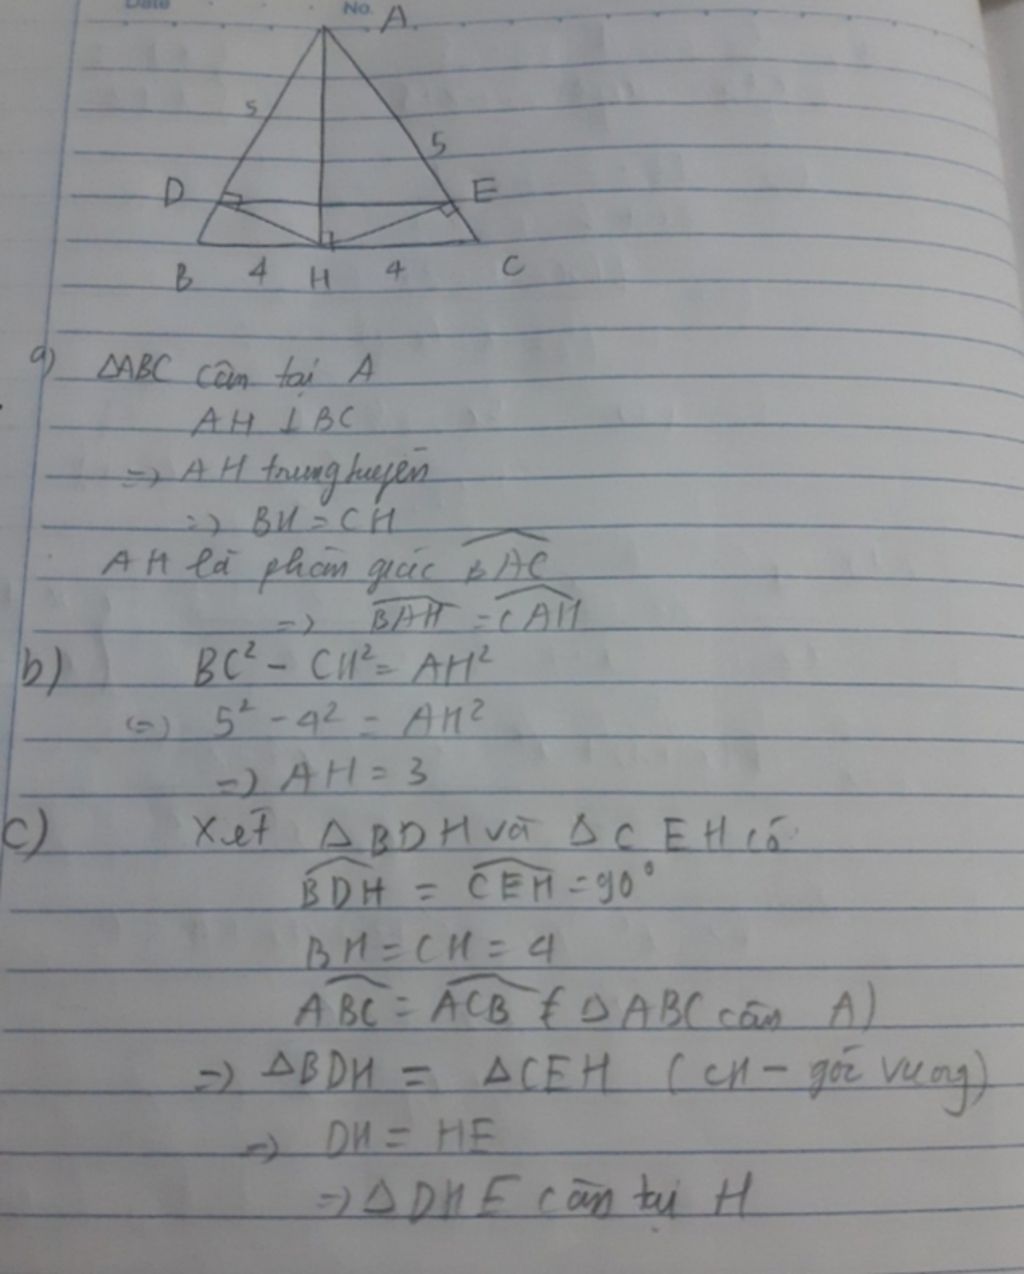 Date No.
A
5
5
D E
B 4 H 4 C
a) ΔABC cân tại A
AH ⊥ BC
=> AH trung tuyến
=> BH = CH
AH là phân giác \widehat{BAC}
=> \widehat{BAH} = \widehat{CAH}
b) BC² - CH² = AH²
(=) 5² - 4² = AH²
=> AH = 3
c) Xét Δ BDH và Δ CEH có
\widehat{BDH} = \widehat{CEH} = 90°
BH = CH = 4
\widehat{ABC} = \widehat{ACB} (Δ ABC cân A)
=> ΔBDH = ΔCEH (CH - góc vuông)
=> DH = HE
=> ΔDHE cân tại H